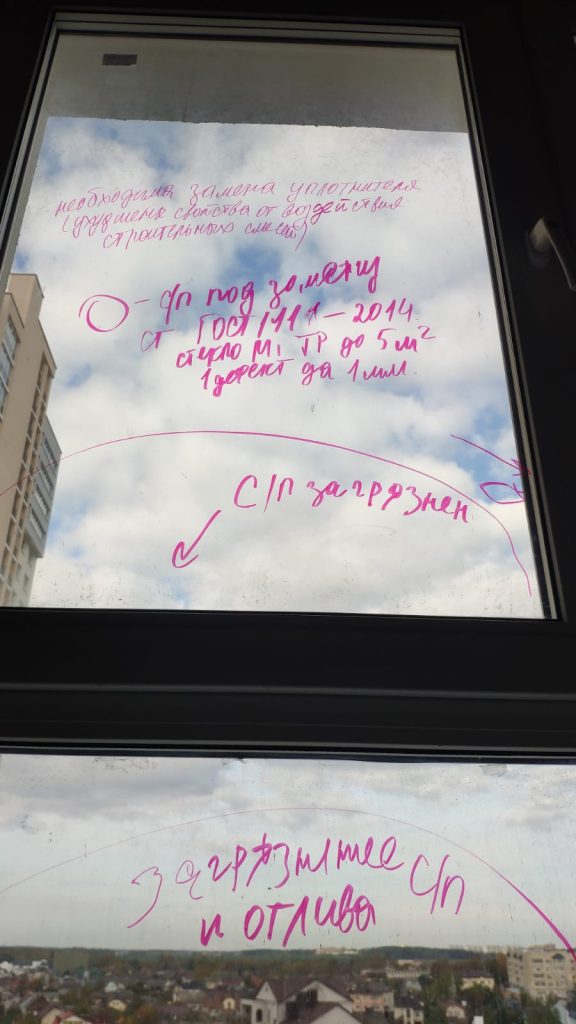 необходима замена уплотнителя
(ухудшение свойства от воздействия
строительных смесей)
О - с/п под замену
ст ГОСТ 111 - 2014
стекло М1 тр до 5 м²
1 дефект да 1 мм.
С/п загрязнен
загрязнение с/п
и отлива